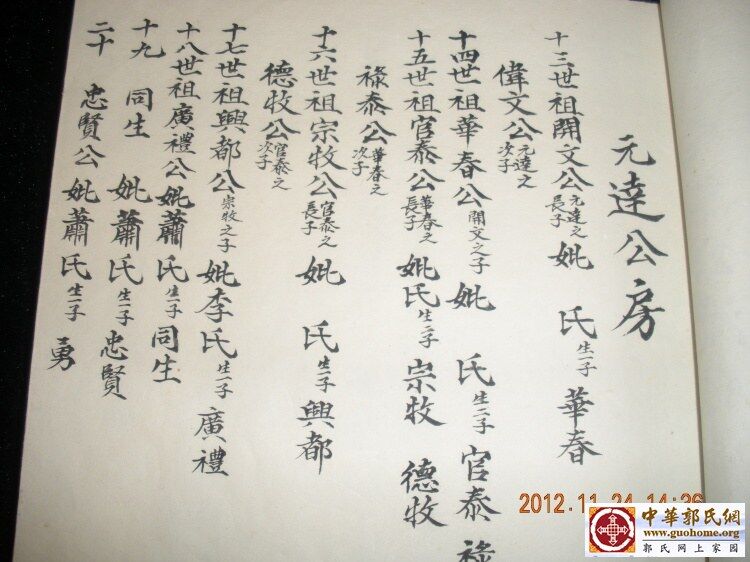 元達公房
十三世祖開文公元達之長子妣 氏生一子 華春
偉文公元達之次子
十四世祖華春公開文之子妣 氏生二子 官泰 祿
十五世祖官泰公華春之長子妣氏生二子 宗牧 德牧
祿泰公華春之次子
十六世祖宗牧公官泰之長子 妣 氏生一子 興都
德牧公官泰之次子
十七世祖興都公宗牧之子 妣李氏生一子 廣禮
十八世祖廣禮公妣蕭氏生一子 同生
十九 同生 妣蕭氏生一子 忠賢
二十 忠賢公 妣蕭氏生一子 勇
2012.11.24 14:36
中華郭氏網
www.guohome.org
郭氏网上家园